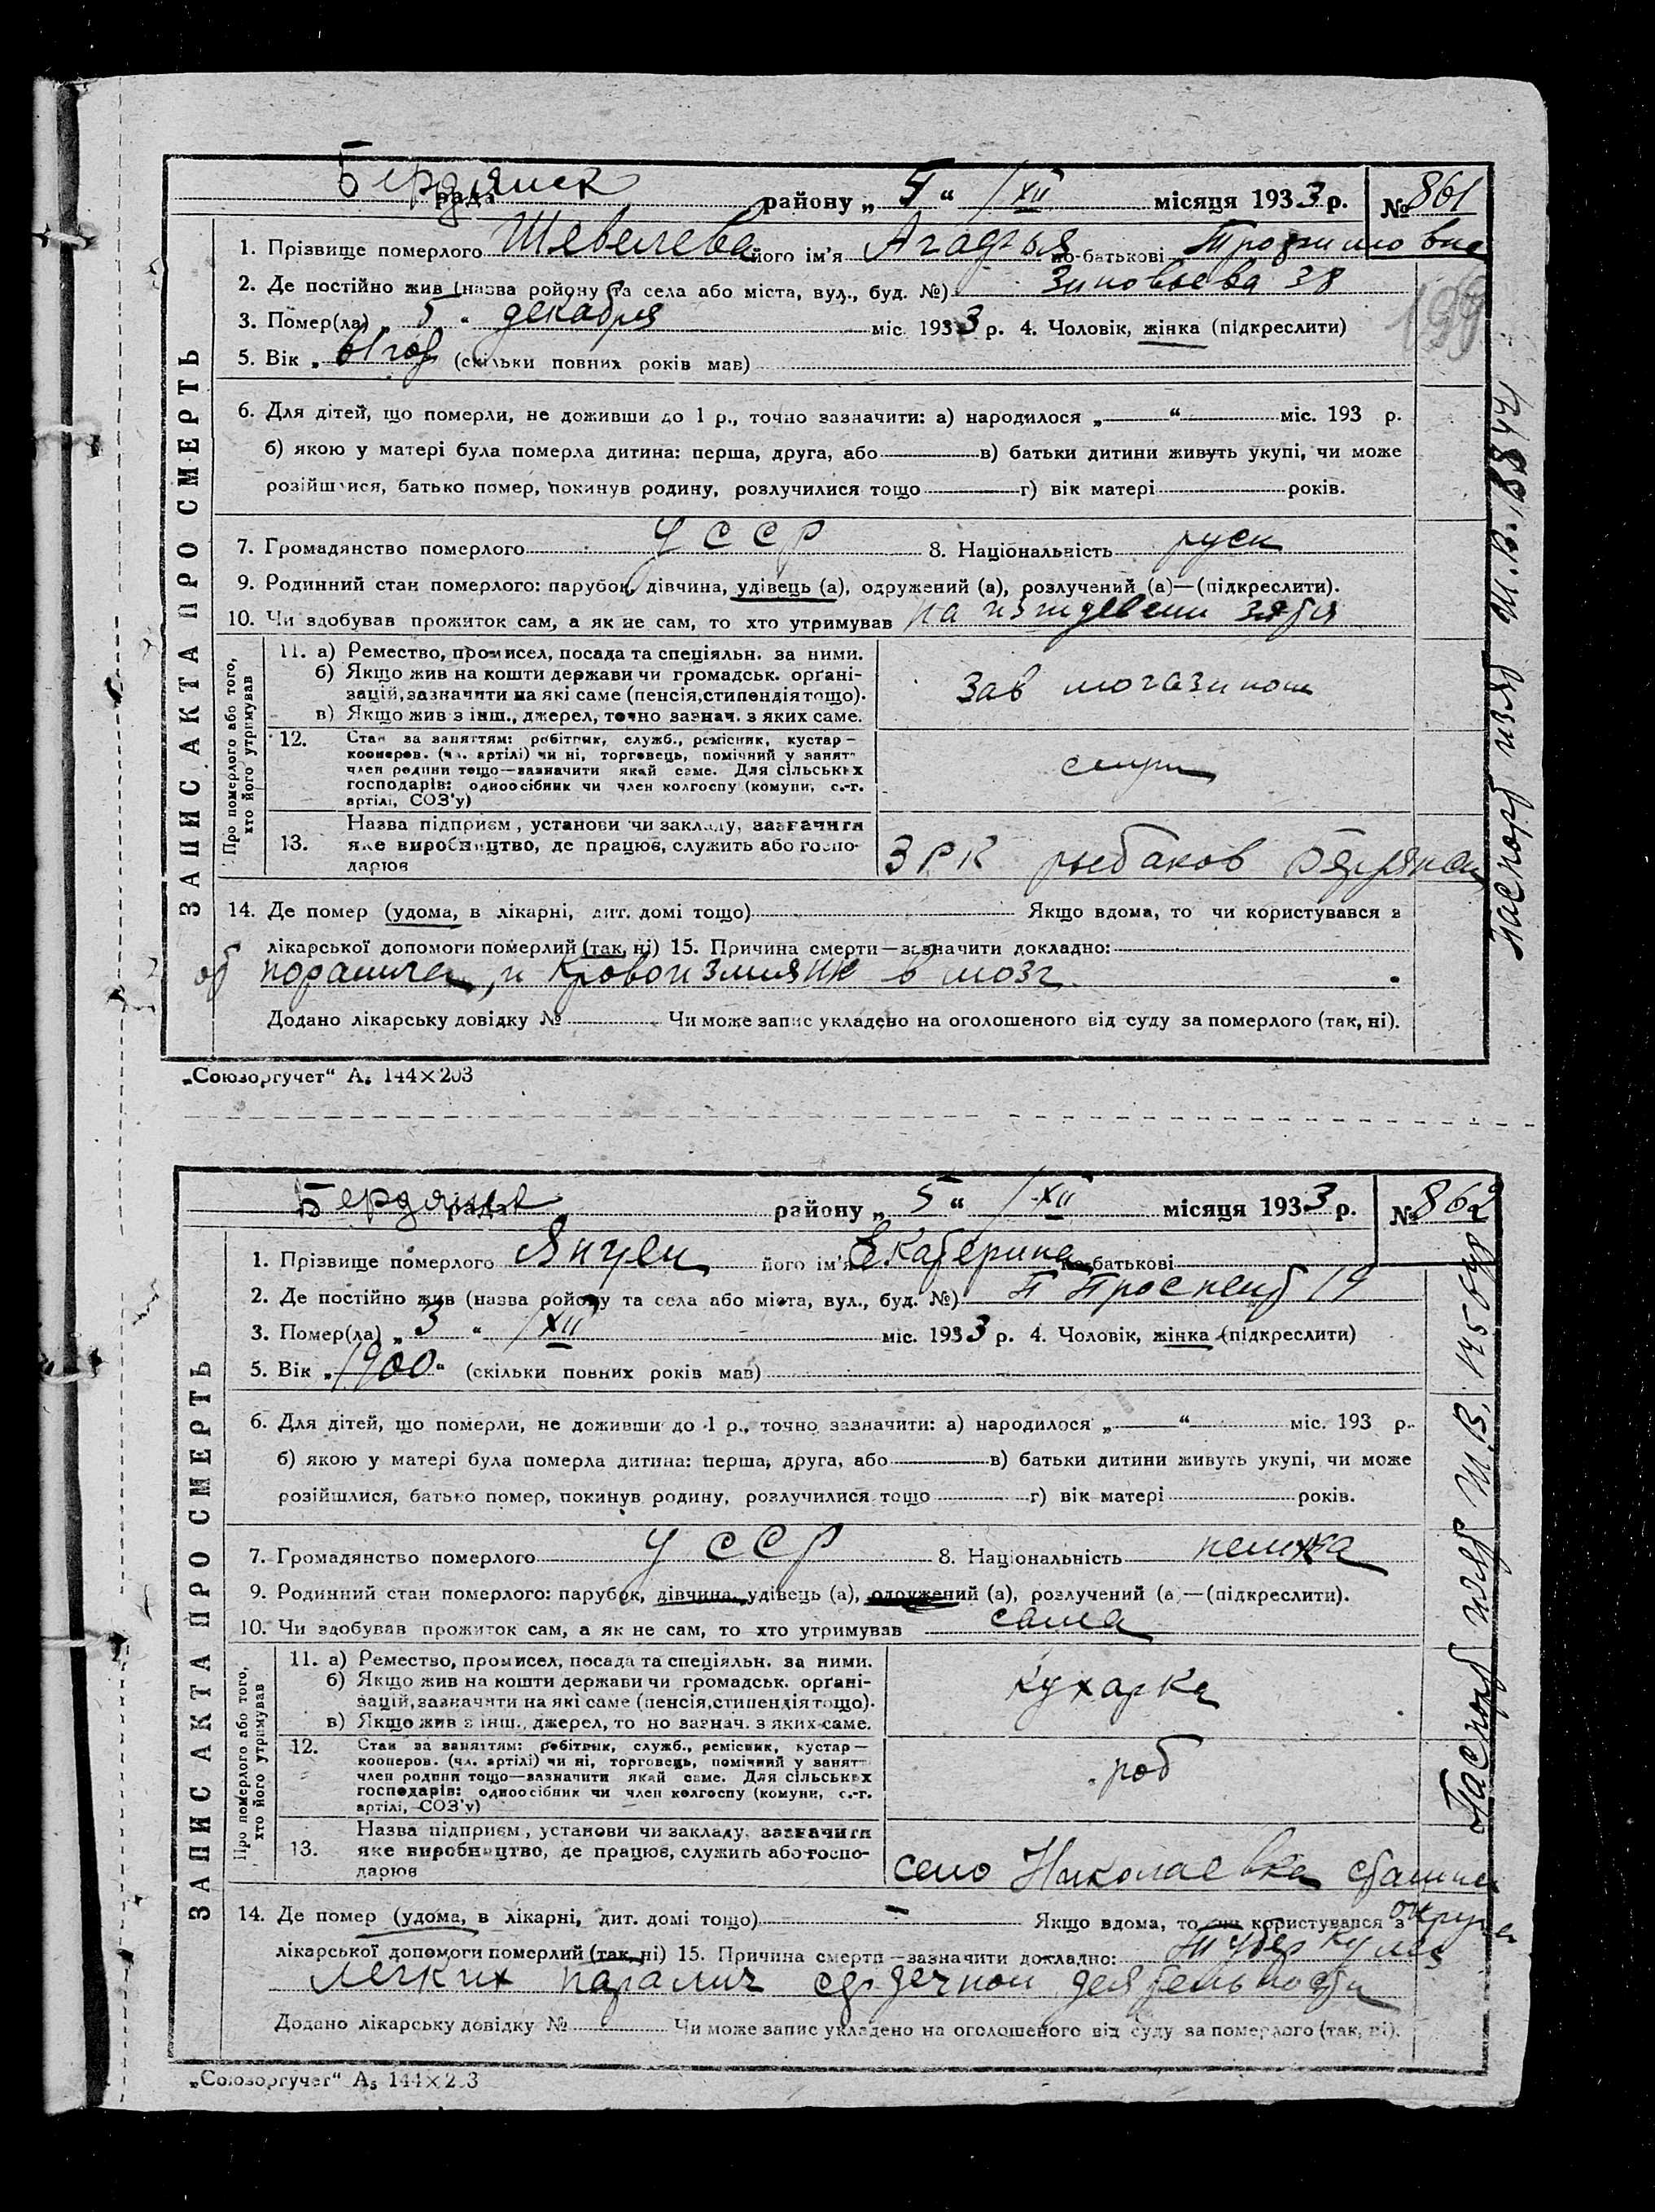 Бердянск рада району „ 5 “ / XII місяця 1933 р. № 861
1. Прізвище померлого Шевелева його ім'я Агафья по-батькові
2. Де постійно жив (назва ройону та села або міста, вул., буд. №) Зиновьева 38
3. Помер(ла) „ 5 “ декабря міс. 1933 р. 4. Чоловік, жінка (підкреслити)
199
5. Вік „ 61 год (скільки повних років мав)
6. Для дітей, що померли, не доживши до 1 р., точно зазначити: а) народилося „ “ міс. 193 р.
б) якою у матері була померла дитина: перша, друга, або в) батьки дитини живуть укупі, чи може
розійшлися, батько помер, покинув родину, розлучилися тощо г) вік матері років.
7. Громадянство померлого УССР 8. Національність руск
9. Родинний стан померлого: парубок, дівчина, удівець (а), одружений (а), розлучений (а)—(підкреслити).
10. Чи здобував прожиток сам, а як не сам, то хто утримував на иждевени зятя
ЗАПИС АКТА ПРО СМЕРТЬ
Про померлого або того,
хто його утримував
11. а) Ремество, промисел, посада та спеціяльн. за ними.
б) Якщо жив на кошти держави чи громадськ. орґані-
зацій, зазначити на які саме (пенсія, стипендія тощо).
в) Якщо жив з інш., джерел, точно зазнач. з яких саме.
Зав могазином
12. Стан за заняттям: робітник, служб., ремісник, кустар—
кооперов. (чл. артілі) чи ні, торговець, помічний у занят
член родини тощо—зазначити який саме. Для сільських
господарів: одноосібник чи член колгоспу (комуни, с.-г.
артілі, СОЗ'у)
13. Назва підприєм, установи чи закладу, зазначити
яке виробництво, де працює, служить або госпо-
дарює
ЗРК рыбаков
14. Де помер (удома, в лікарні, дит. домі тощо) Якщо вдома, то чи користувався з
лікарської допомоги померлий (так, ні) 15. Причина смерти—зазначити докладно:
от поралича, и в мозг
Додано лікарську довідку № Чи може запис укладено на оголошеного від суду за померлого (так, ні).
Паспорт изят
„Союзоргучет“ А5 144×203
Бердянск рада району „ 5 “ / XII місяця 1933 р. № 862
1. Прізвище померлого Янцен його ім'я Екатерина по-батькові
2. Де постійно жив (назва ройону та села або міста, вул., буд. №) П Проспект 19
3. Помер(ла) „ 3 “ / XII міс. 1933 р. 4. Чоловік, жінка (підкреслити)
5. Вік „ 1900 “ (скільки повних років мав)
6. Для дітей, що померли, не доживши до 1 р., точно зазначити: а) народилося „ “ міс. 193 р.
б) якою у матері була померла дитина: перша, друга, або в) батьки дитини живуть укупі, чи може
розійшлися, батько помер, покинув родину, розлучилися тощо г) вік матері років.
7. Громадянство померлого УССР 8. Національність немка
9. Родинний стан померлого: парубок, дівчина, удівець (а), одружений (а), розлучений (а)—(підкреслити).
10. Чи здобував прожиток сам, а як не сам, то хто утримував сама
ЗАПИС АКТА ПРО СМЕРТЬ
Про померлого або того,
хто його утримував
11. а) Ремество, промисел, посада та спеціяльн. за ними.
б) Якщо жив на кошти держави чи громадськ. орґані-
зацій, зазначити на які саме (пенсія, стипендія тощо).
в) Якщо жив з інш., джерел, то но зазнач. з яких саме.
кухарка
12. Стан за заняттям: робітник, служб., ремісник, кустар—
кооперов. (чл. артілі) чи ні, торговець, помічний у занятт
член родини тощо—зазначити який саме. Для сільських
господарів: одноосібник чи член колгоспу (комуни, с.-г.
артілі, СОЗ'у)
роб
13. Назва підприєм, установи чи закладу, зазначити
яке виробництво, де працює, служить або госпо-
дарює
село Николаевка
14. Де помер (удома, в лікарні, дит. домі тощо) – Якщо вдома, то чи користувався з
лікарської допомоги померлий (так, ні) 15. Причина смерти—зазначити докладно: туберкулез
легких паралич сердечной деятельности
Додано лікарську довідку № Чи може запис укладено на оголошеного від суду за померлого (так, ні).
Паспорт изят
„Союзоргучет“ А5 144×203